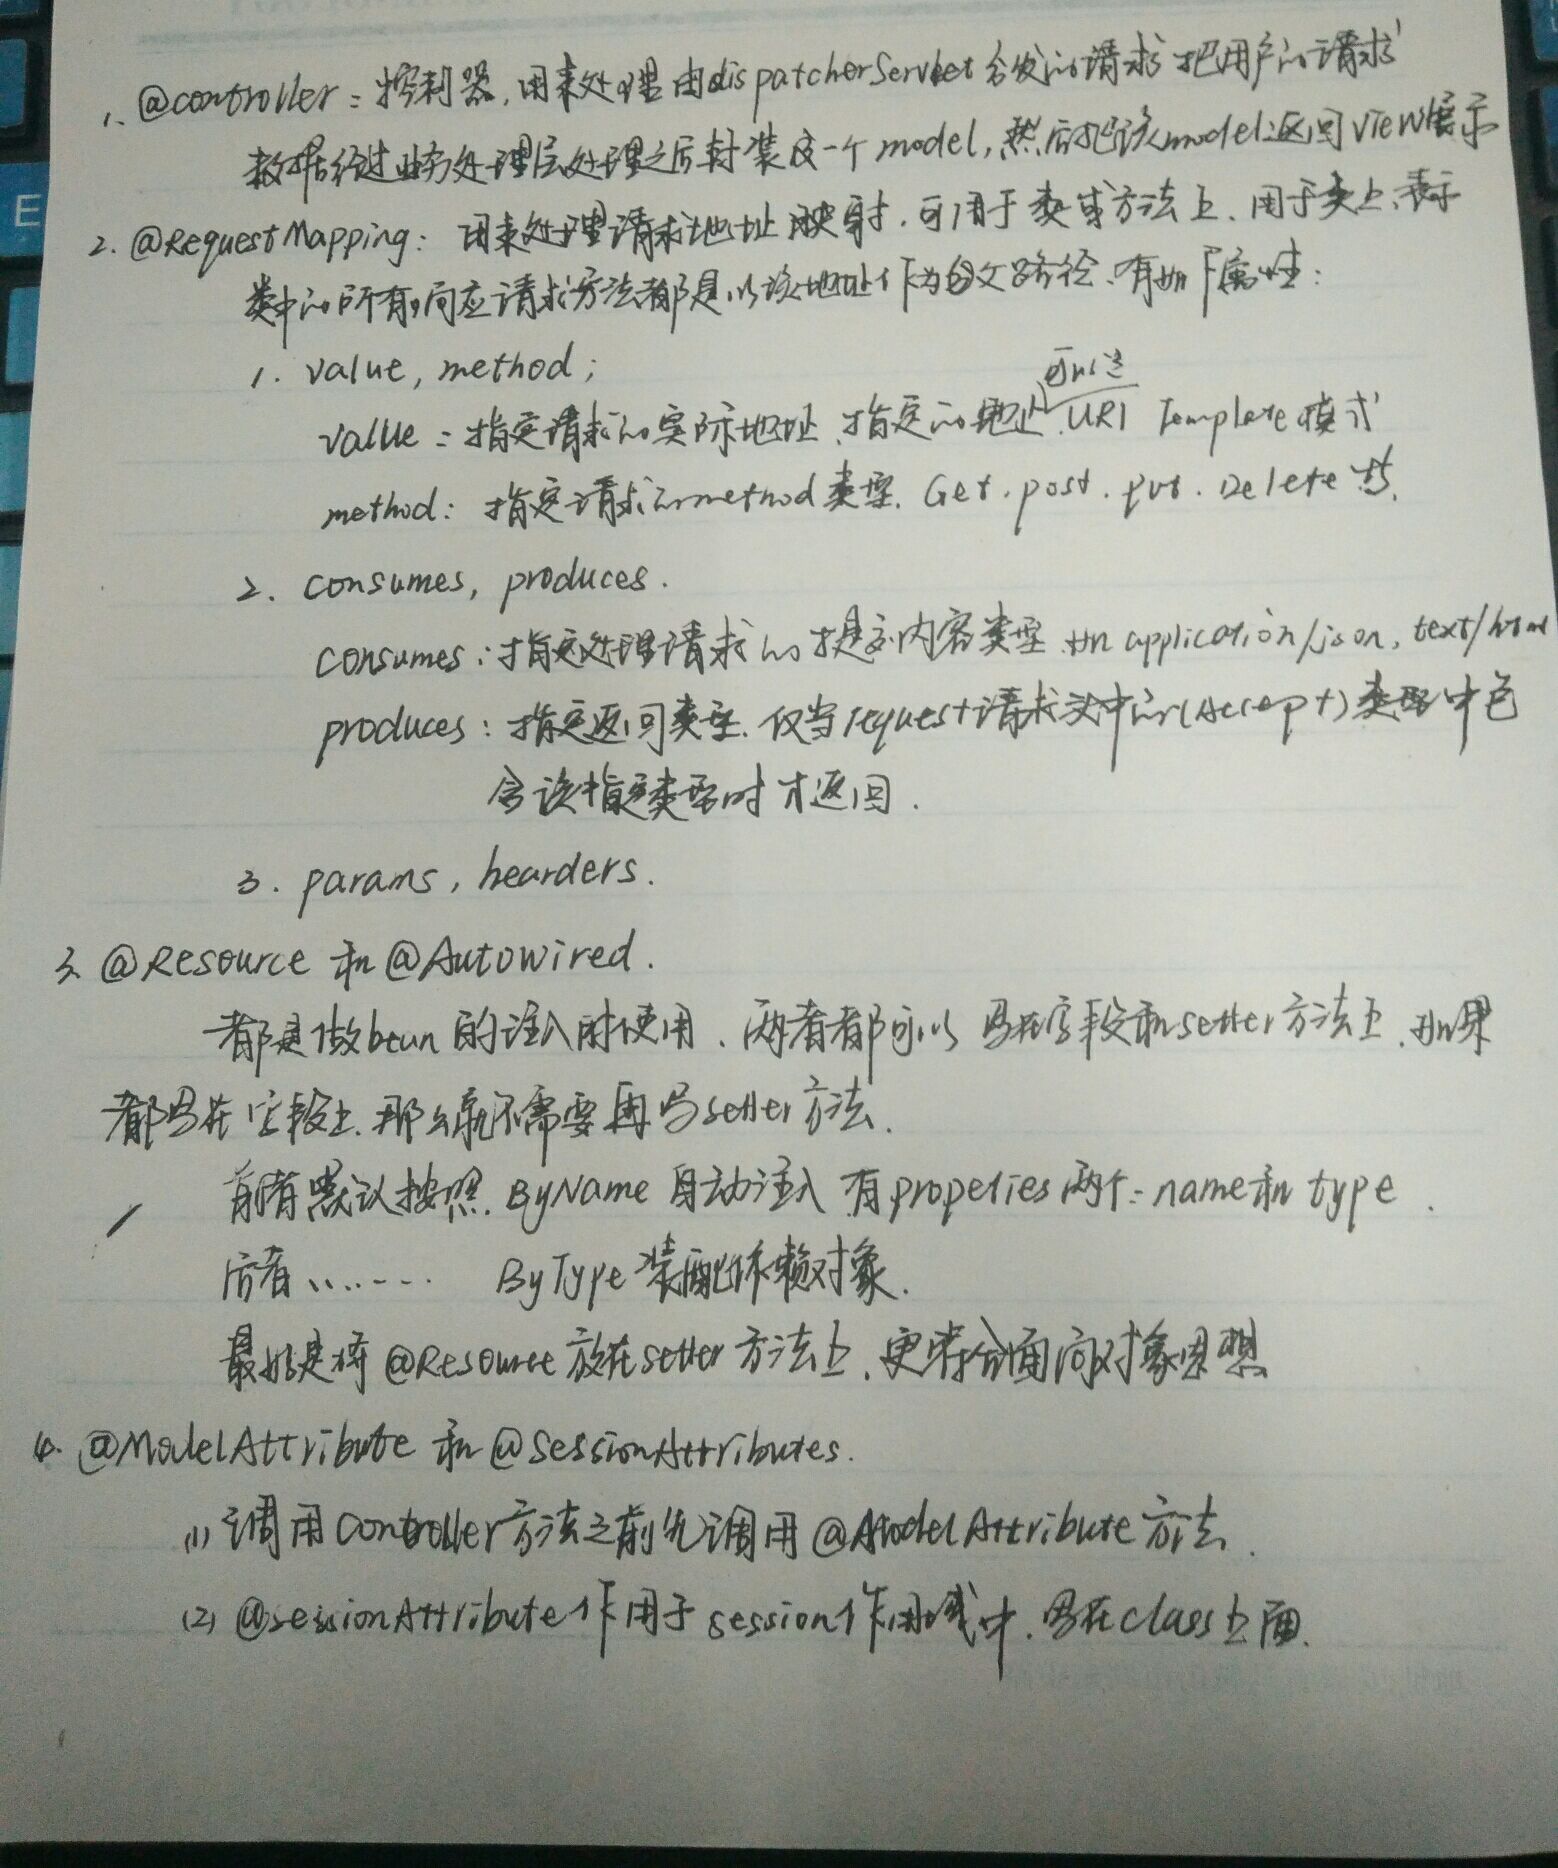 1、@controller：控制器，用来处理由dispatcherServlet分发的请求 把用户的请求
数据经过业务处理层处理之后封装成一个model，然后把该model返回view展示
2. @RequestMapping：用来处理请求地址映射，可用于类或方法上、用于类上、表示
类中的所有响应请求方法都是以该地址作为父路径、有如下属性：
1. value, method；
可以是
value：指定请求的实际地址、指定的地址 URI Template模式
method：指定请求的method类型. Get、post、put、Delete等.
2. consumes, produces.
consumes：指定处理请求的提交内容类型 如application/json, text/html
produces：指定返回类型. 仅当request请求头中的(Accept)类型中包
含该指定类型时才返回.
3. params, hearders.
3、@Resource 和 @Autowired.
都是做bean的注入时使用、两者都可以写在字段和setter方法上、如果
都写在字段上、那么就不需要再写setter方法.
前者默认按照 ByName 自动注入 有properies两个：name和type.
后者........ ByType 装配依赖对象.
最好是将@Resource放在setter方法上、更符合面向对象思想
4. @ModelAttribute 和 @SessionAttributes.
(1) 调用Controller方法之前先调用@ModelAttribute方法.
(2) @sessionAttribute作用于session作用域中、写在class上面.
E